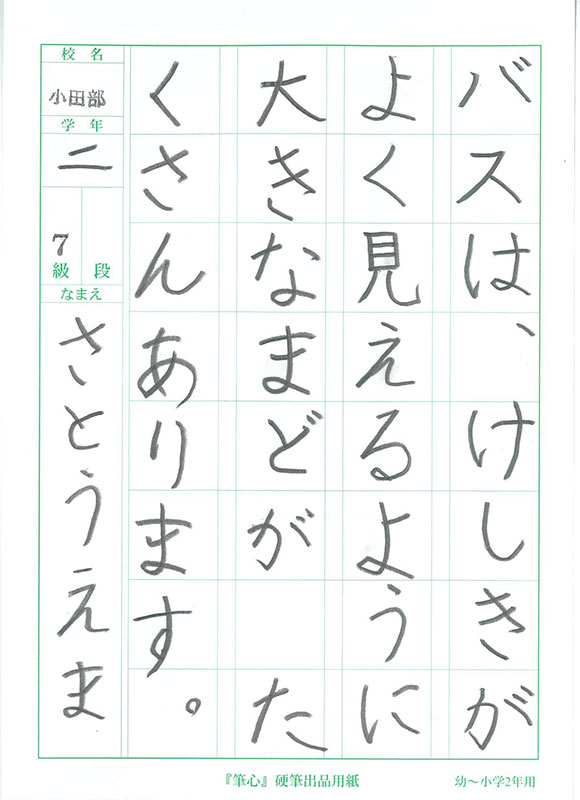 バスは、けしきが
よく見えるように
大きなまどが　た
くさんあります。
校名
小田部
学年
二
7
級 段
なまえ
さとうえま
『筆心』硬筆出品用紙
幼～小学2年用